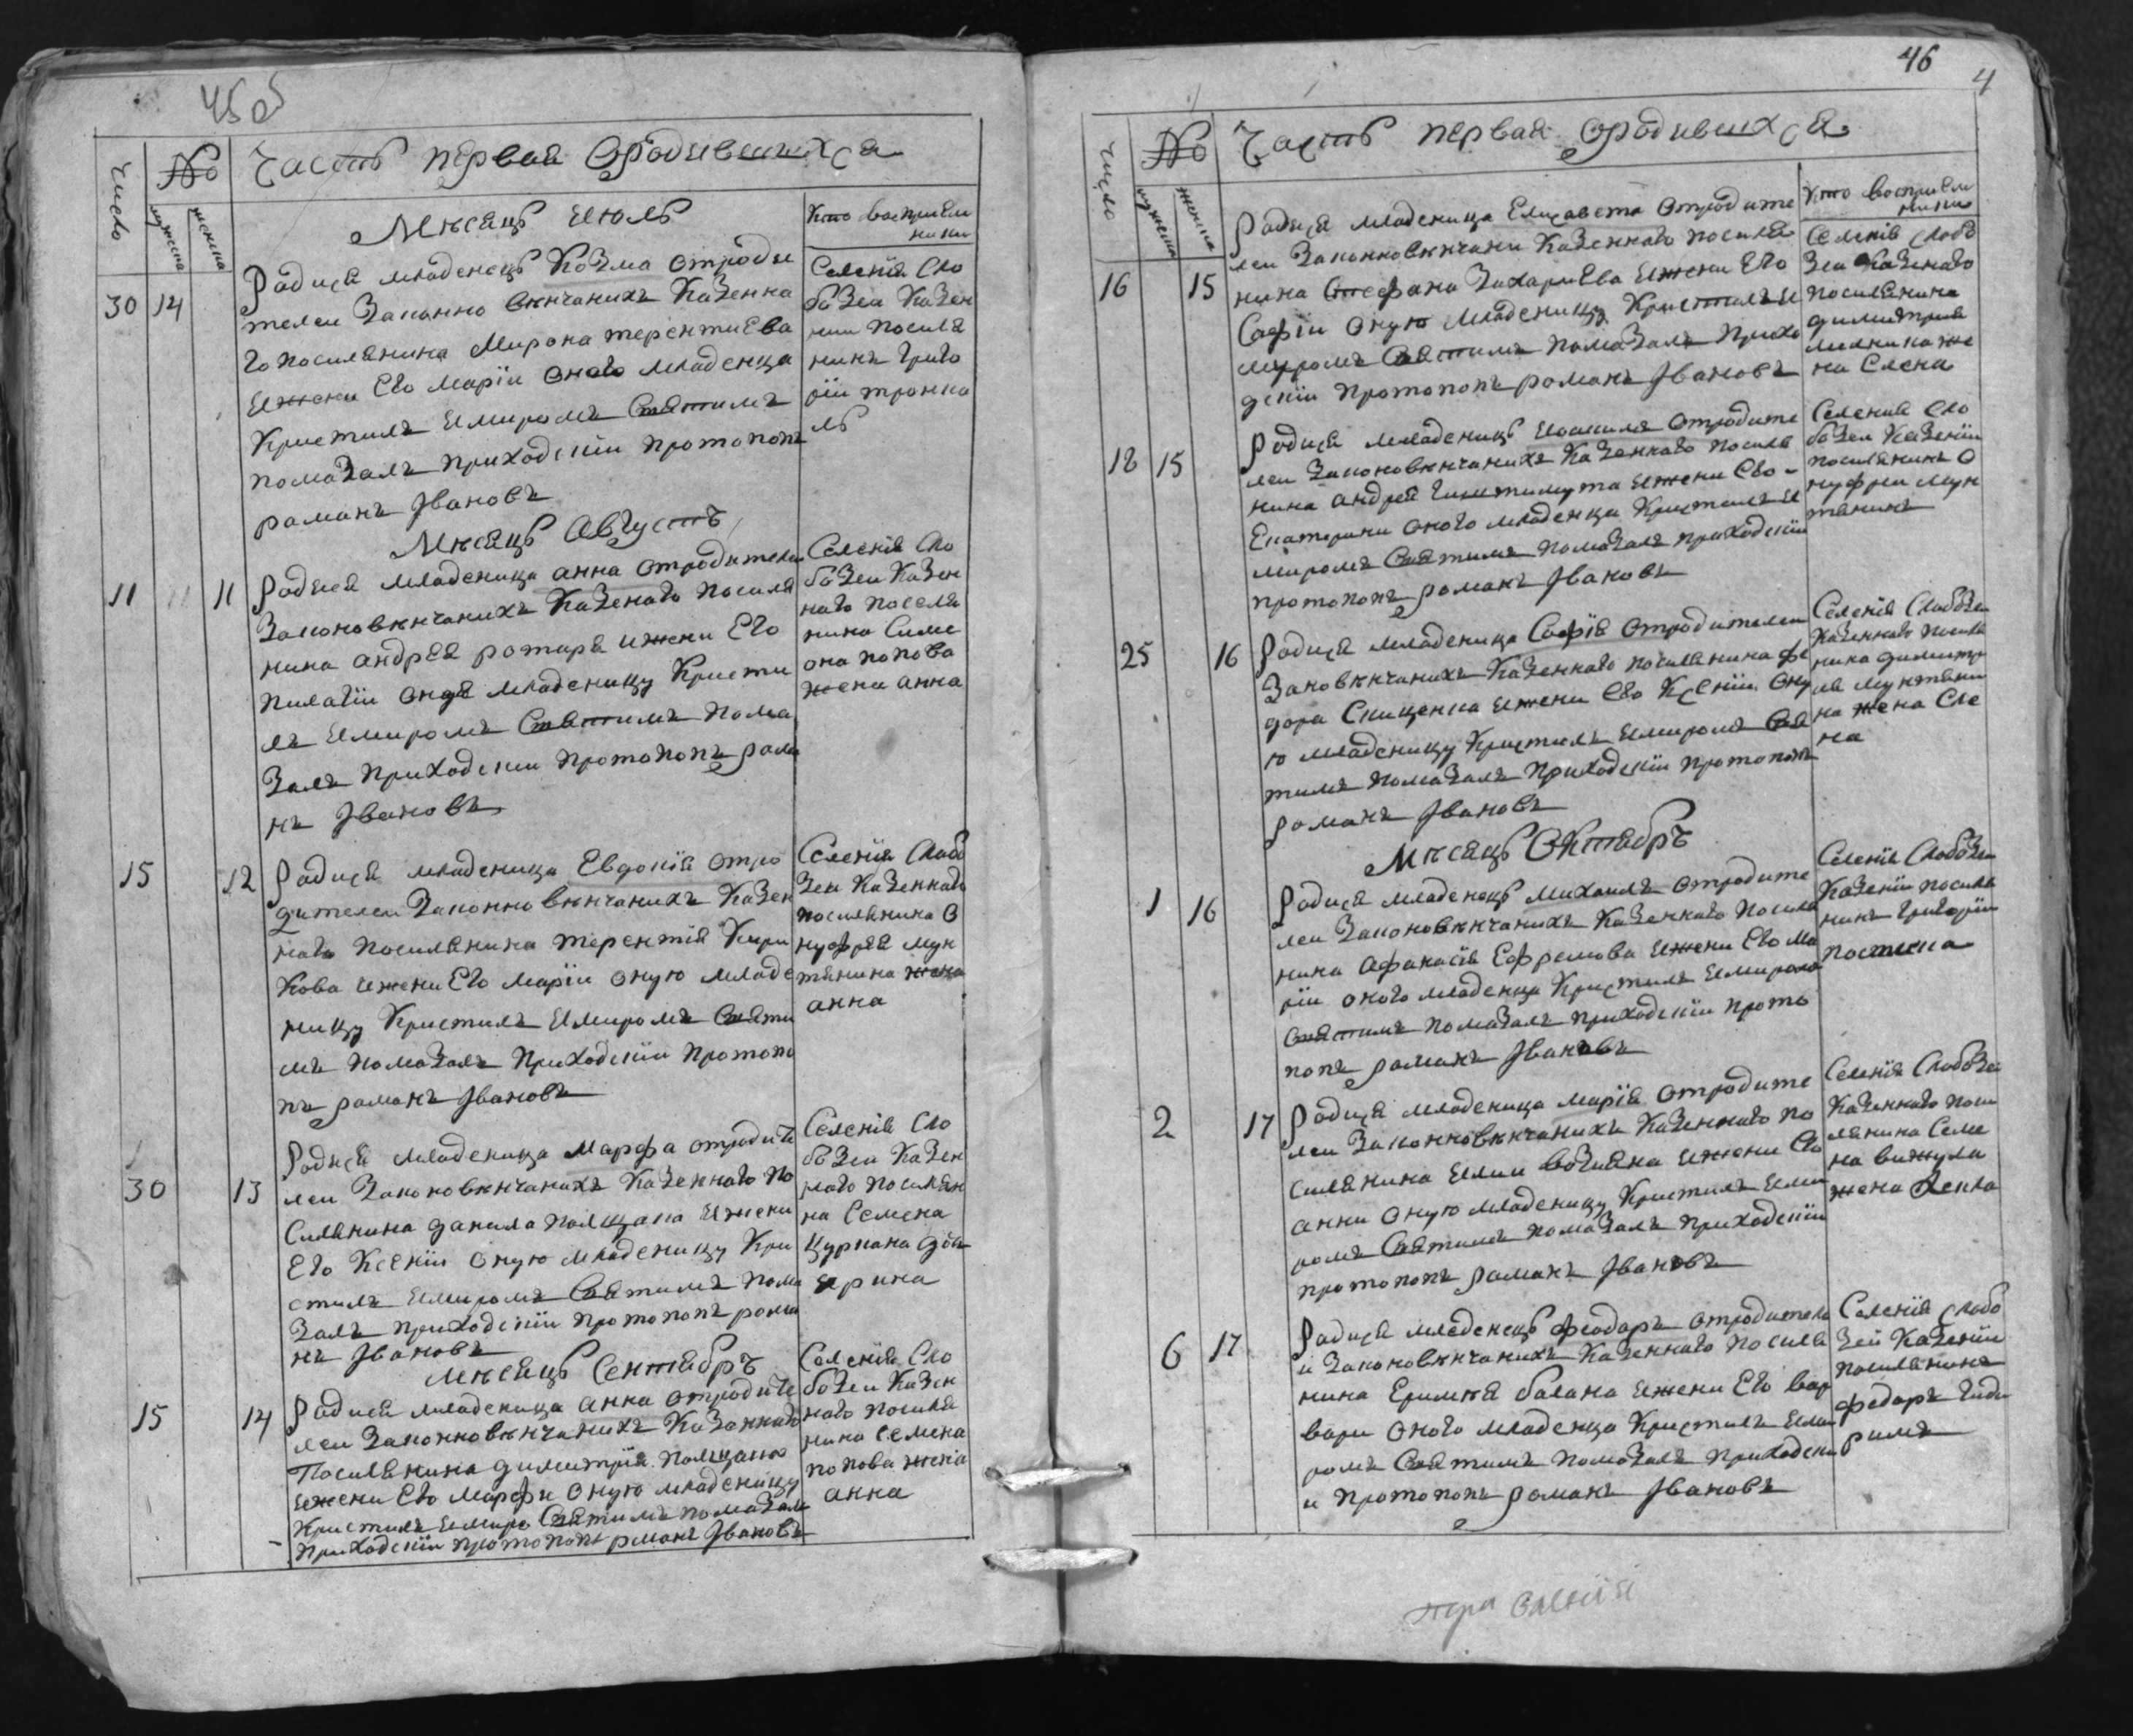 45об
Число
№
мужеска
женска
Часть первая Ородившихся
Мѣсяць Июль
Кто восприем
ники
30 14
Родися младенець Козма отроди
телеи Законно вѣнчанихъ Казенна
го посилянина Мирона терентиева
ижени Его Марiи оного младенца
Кристилъ имиромъ Святимъ
помазалъ приходскiи протопопъ
романъ Ивановъ
Селенiя Сло
бозеи Казен
нии посиля
нинъ Григо
рiи тронка
ль
Мѣсяць Августъ
11 11
Родися младеница анна отродителеи
Законовѣнчанихъ Казенаго посиля
нина андрея ротаря ижени Его
Пилагiи онуя младеницу Кристи
лъ имиромъ Святимъ пома
залъ приходскии протопопъ рома
нъ Ивановъ
Селенiя Сло
бозеи Казен
наго поселя
нина Симе
она попова
жена анна
15 12
Родися младеница Евдокiя отро
дителеи Законно вѣнчанихъ Казен
наго посилянина терентiя Кири
кова ижени Его Марiи оную младе
ницу Кристилъ имиромъ Святи
мъ помазалъ приходскiи протопо
пъ романъ Ивановъ
Селенiя Слобо
зеи Казеннаго
посилянина О
нуфрея мун
тянина жена
анна
30 13
Родися младеница Марфа отродите
леи Законовѣнчанихъ Казеннаго по
силянина данила полщака ижени
Его Ксенiи оную младеницу Кри
стилъ имиромъ Святимъ пома
залъ приходскiи протопопъ рома
нъ Ивановъ
Селенiя Сло
бозеи Казен
наго посилян
на Семена
Цуркана
ирина
Мѣсяць Сентябръ
15 14
Родися младеница анна отродите
леи Законновѣнчанихъ Казеннаго
Посилянина димитрiя полщака
ижени Его Марфи оную младеницу
Кристилъ имиро Святимъ помазалъ
приходскiи протопопъ романъ Ивановъ
Селенiя Сло
бозеи Казен
наго посиля
нина Семена
попова жена
анна
46
4
Число
№
мужеска
женска
Часть первая Ородившихся
Кто восприем
ники
16 15
Родися младеница Елисавета отродите
леи Законновѣнчани Казеннаго посиля
нина Стефана Захариева ижени Его
Софiи оную младеницу Кристилъ и
муромъ Святимъ помазалъ прихо
дскiи протопопъ романъ Ивановъ
Селенiя Слобо
зеи Казенаго
посилянина
димитрия
мелника же
на Елена
18 15
Родися младенець отродите
леи Законовѣнчанихъ Казеннаго посиля
нина андрея ижени Его
Екатерини оного младенца Кристилъ и
миромъ Святимъ помазалъ приходскiи
протопопъ романъ Ивановъ
Селения Сло
бозеи Казенiи
посилянинъ О
нуфреи мун
тянинъ
25 16
Родися младеница Софiя отродителеи
Зановѣнчанихъ Казеннаго посилянина фе
дора ижени Его Ксенiи ону
ю младеницу Кристилъ имиромъ Свя
тимъ помазалъ приходскiи протопопъ
романъ Ивановъ
Селенiя Слобозеи
Казеннаго посиля
нина димитр
ия мунтяни
на жена Еле
на
Мѣсяць Октябръ
1 16
Родися младенець Михаилъ отродите
леи Законовѣнчанихъ Казеннаго посиля
нина Афанасiя Ефремова ижени Его Ма
рiи оного младенца Кристилъ имиромъ
Святимъ помазалъ приходскiи прото
попъ романъ Ивановъ
Селенiя Слобозеи
Казенiи посиля
нинъ Григорiи
постика
2 17
Родися младеница Марiя отродите
леи Законновѣнчанихъ Казеннаго по
силянина Илии возияна ижени Его
анни оную младеницу Кристилъ ими
ромъ Святимъ помазалъ приходскiи
протопопъ романъ Ивановъ
Селенiя Слобозеи
Казеннаго поси
лянина Семе
на
жена
6 17
Родися младенець феодоръ отродителе
и Законовѣнчанихъ Казеннаго посиля
нина Еримѣя балана ижени Его вар
вари оного младенца Кристилъ ими
ромъ Святимъ помазалъ приходски
и протопопъ романъ Ивановъ
Селенiя Слобо
зеи Казенiи
посилянинъ
федоръ гиди
римъ